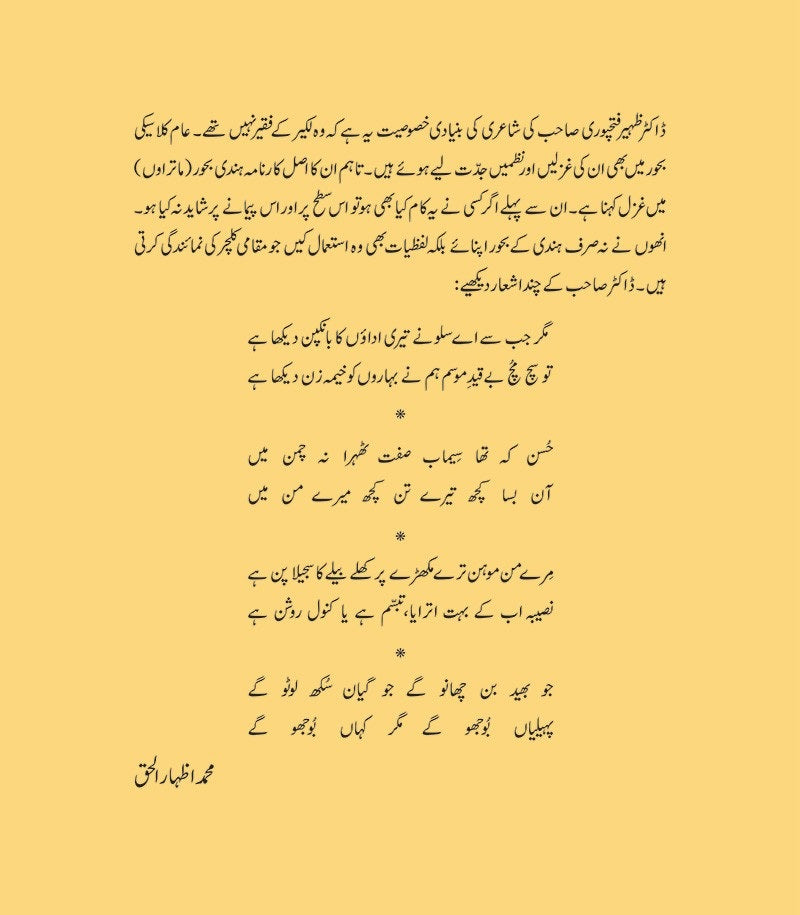 ڈاکٹر ظہیر فتحپوری صاحب کی شاعری کی بنیادی خصوصیت یہ ہے کہ وہ لکیر کے فقیر نہیں تھے۔ عام کلاسیکی
بحور میں بھی ان کی غزلیں اور نظمیں جدّت لیے ہوئے ہیں۔ تاہم ان کا اصل کارنامہ ہندی بحور (ماتراوں)
میں غزل کہنا ہے۔ ان سے پہلے اگر کسی نے یہ کام کیا بھی ہو تو اس سطح پر اور اس پیمانے پر شاید نہ کیا ہو۔
انھوں نے نہ صرف ہندی کے بحور اپنائے بلکہ لفظیات بھی وہ استعمال کیں جو مقامی کلچر کی نمائندگی کرتی
ہیں۔ ڈاکٹر صاحب کے چند اشعار دیکھیے:
مگر جب سے اے سلونے تیری اداؤں کا بانکپن دیکھا ہے
تو سچ مُچ بے قیدِ موسم ہم نے بہاروں کو خیمہ زن دیکھا ہے
*
حُسن کہ تھا سِیماب صفت ٹھہرا نہ چمن میں
آن بسا کچھ تیرے تن کچھ میرے من میں
*
مِرے من موہن ترے مکھڑے پر کھلے بیلے کا سجیلا پن ہے
نصیبہ اب کے بہت اترایا، تبسّم ہے یا کنول روشن ہے
*
جو بھید بن چھانو گے جو گیان سُکھ لوٹو گے
پہیلیاں بُوجھو گے مگر کہاں بُوجھو گے
محمد اظہار الحق